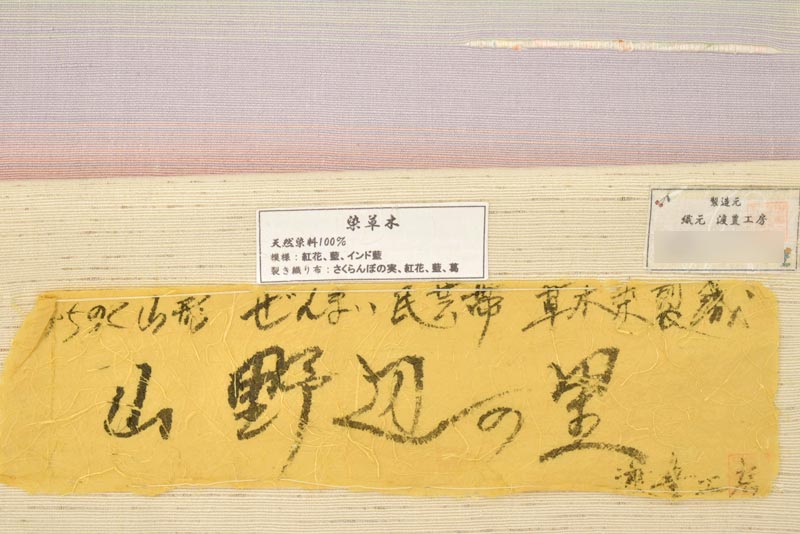 染草木
天然染料100%
模様：紅花、藍、インド藍
裂き織り布：さくらんぼの実、紅花、藍、葛
製造元
織元 渡豊工房
みちのく山形 ぜんまい民芸帯 草木染裂織り
山野辺の里
渡豊工房